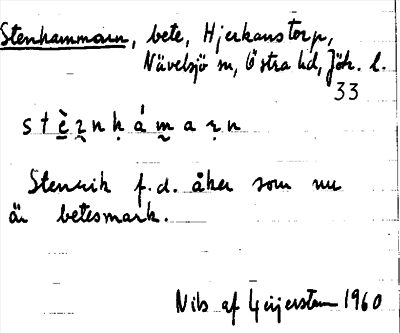 Stenhammarn, bete, Hjerkanstorp,
Nävelsjö sn, Östra hd, Jök. l.
33
s t è̲ n ḥ á m̰ a ṛ n
Stenrik f.d. åker som nu
är betesmark.
Nils af Geijerstam 1960